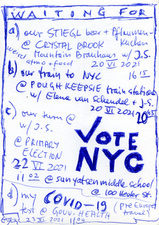 WAITING FOR
a) our STIEGL beer + Pflaumen-
kuchen
@ CRYSTAL BROOK
Mountain Brauhaus w/ J.S.
20 VI 2021
b) our train to NYC 16 VI
@ POUGHKEEPSIE train station
w/ Elena van Schendel + J.S.
20 VI 2021
c) our turn @
w/ J.S.
@ PRIMARY
ELECTION
22 VI 2021
VOTE
NYC
11 02 @ sun yat sen middle school
@ 100 Hester St.
d) my COVID-19
test @ GOUV. HEALTH
23 VI 2021